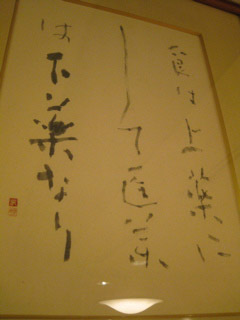 食は上薬に
して医薬
は下薬なり